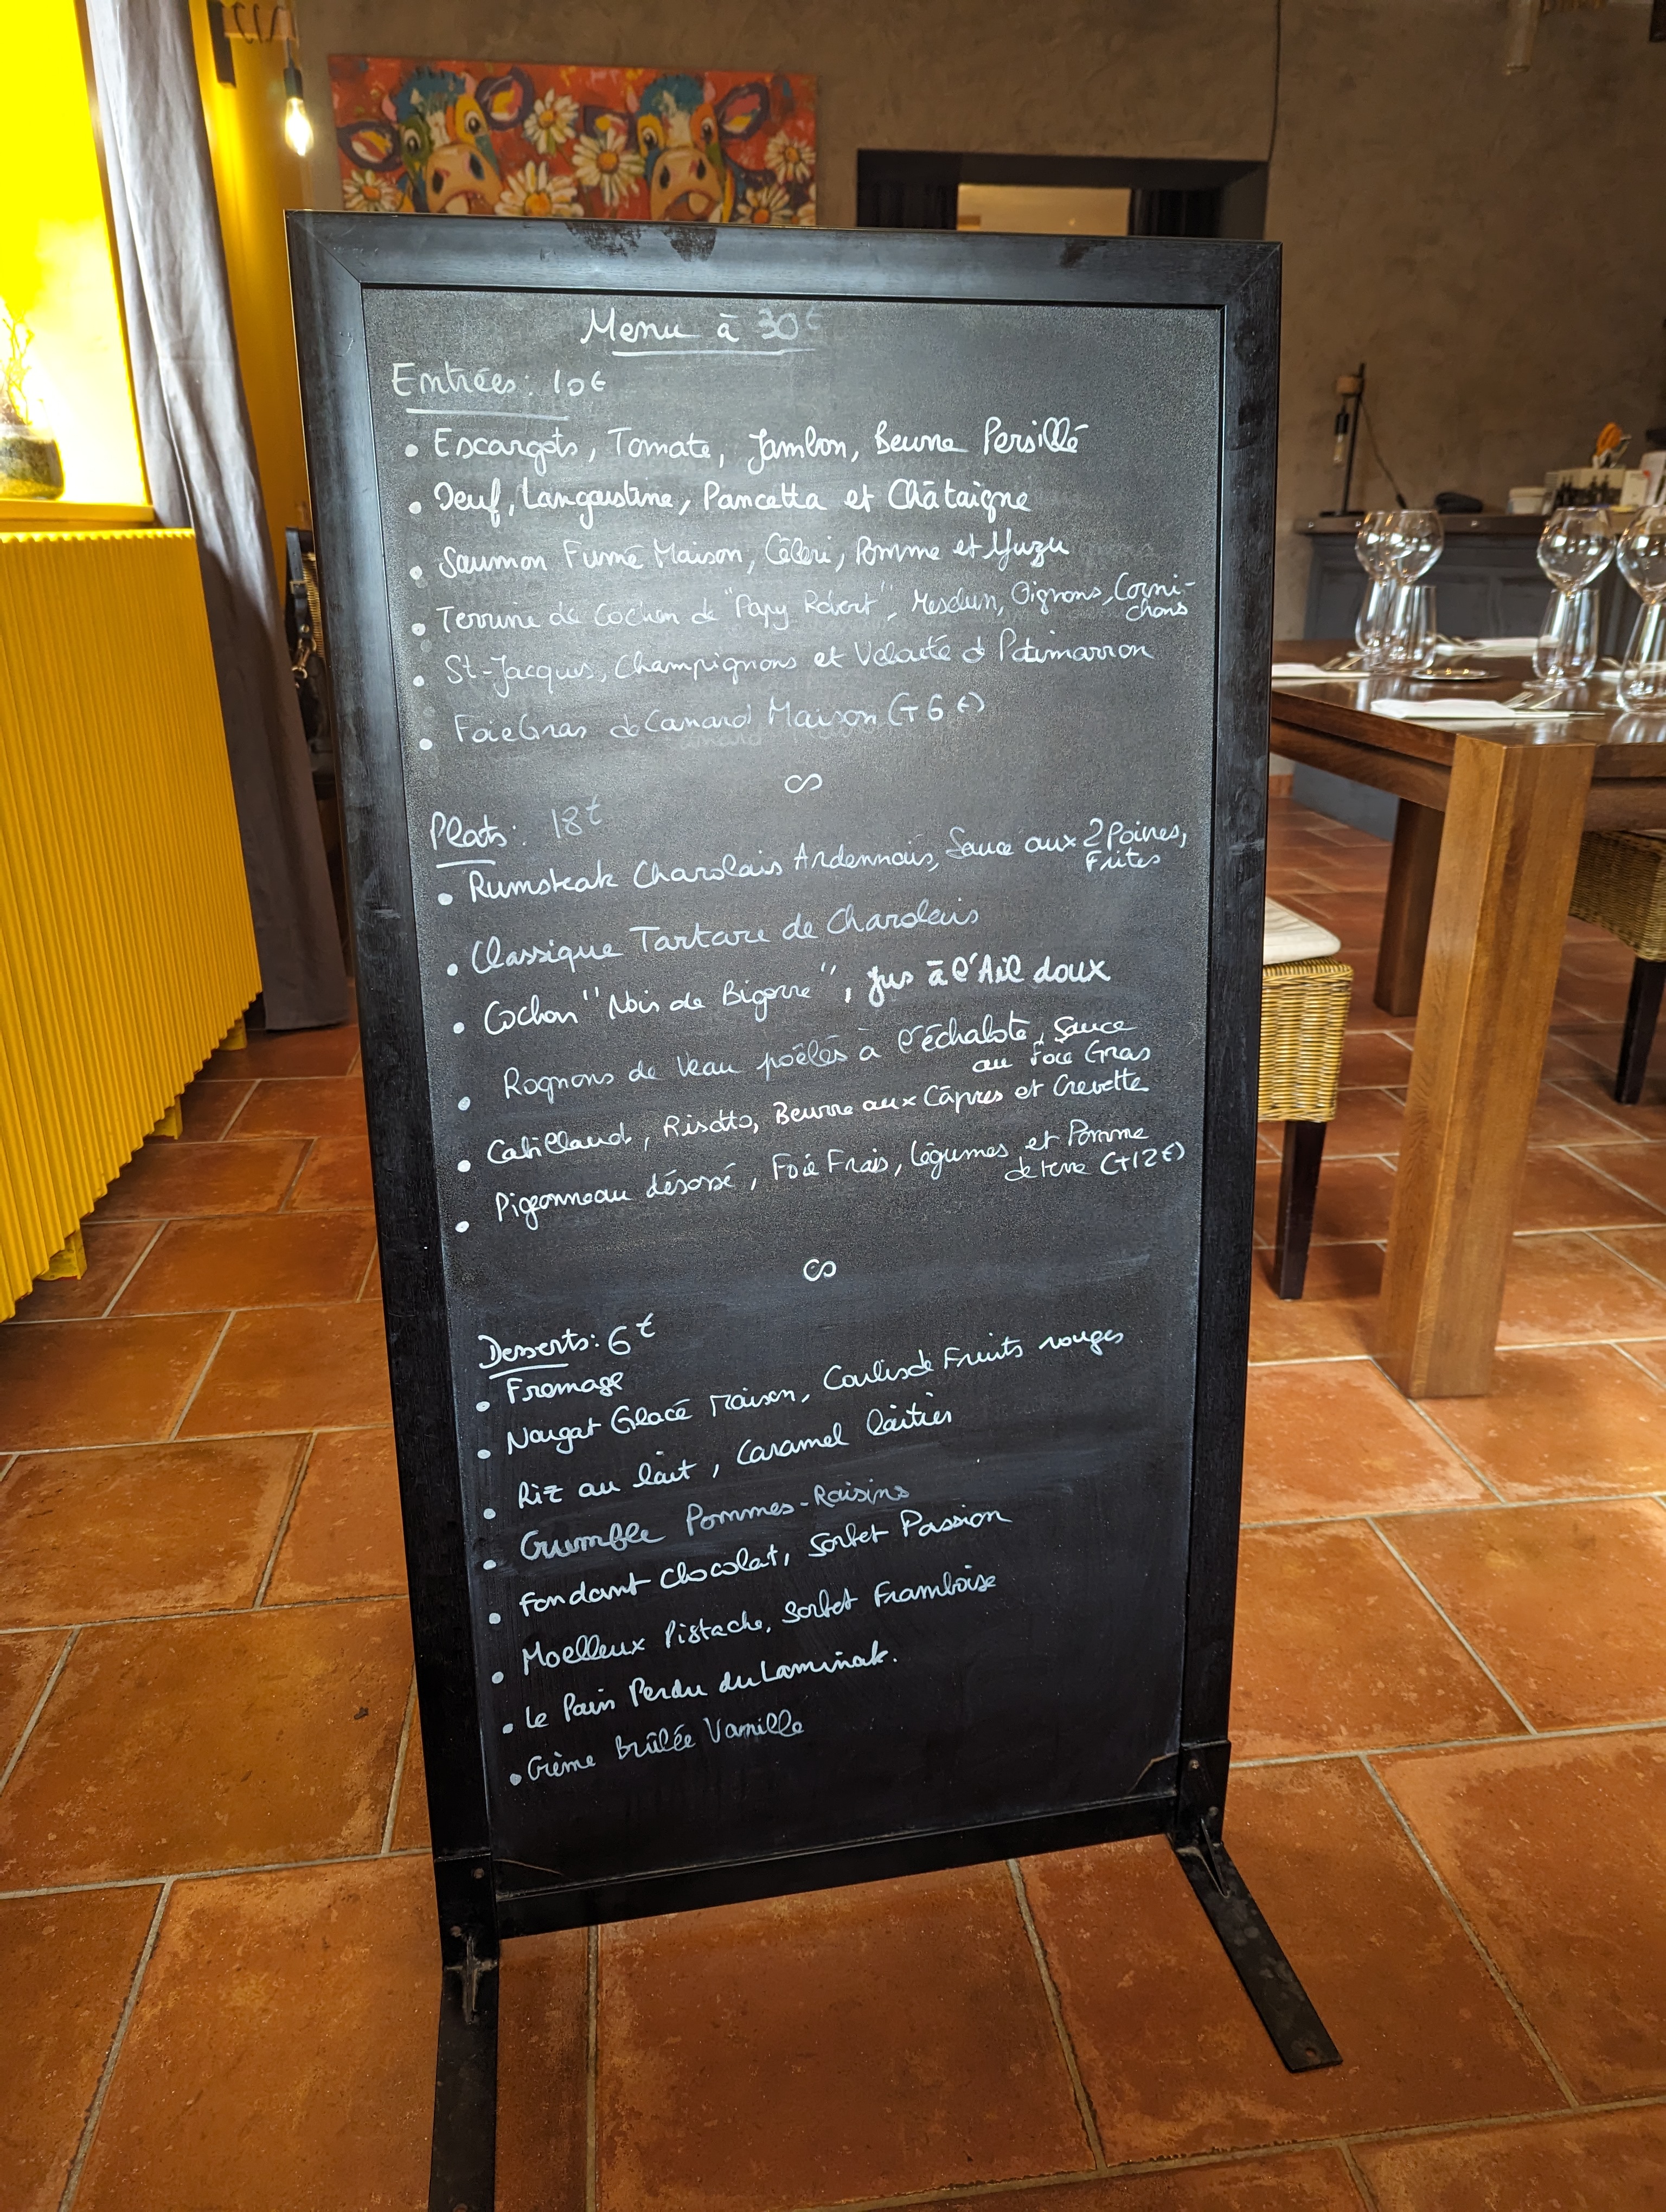 Menu à 30€
Entrées: 10€
• Escargots, Tomate, Jambon, Beurre Persillé
• Oeuf, Langoustine, Pancetta et Châtaigne
• Saumon Fumé Maison, Céleri, Pomme et Yuzu
• Terrine de Cochon de "Papy Robert", Mesclun, Oignons, Corni-
chons
• St-Jacques, Champignons et Velouté d Potimarron
• Foie Gras de Canard Maison (+6€)
Plats: 18€
• Rumsteak Charolais Ardennais, Sauce aux 2 Poivres,
Frites
• Classique Tartare de Charolais
• Cochon "Noir de Bigorre", Jus à l'Ail doux
• Rognons de Veau poêlés à l'échalote, Sauce
au Foie Gras
• Cabillaud, Risotto, Beurre aux Câpres et Crevette
• Pigeonneau désossé, Foie Frais, Légumes et Pomme
de terre (+12€)
Desserts: 6€
• Fromage
• Nougat Glacé Maison, Coulis de Fruits rouges
• Riz au lait, Caramel laitier
• Crumble Pommes-Raisins
• Fondant Chocolat, Sorbet Passion
• Moelleux Pistache, Sorbet Framboise
• Le Pain Perdu du Laminak.
• Crème Brûlée Vanille